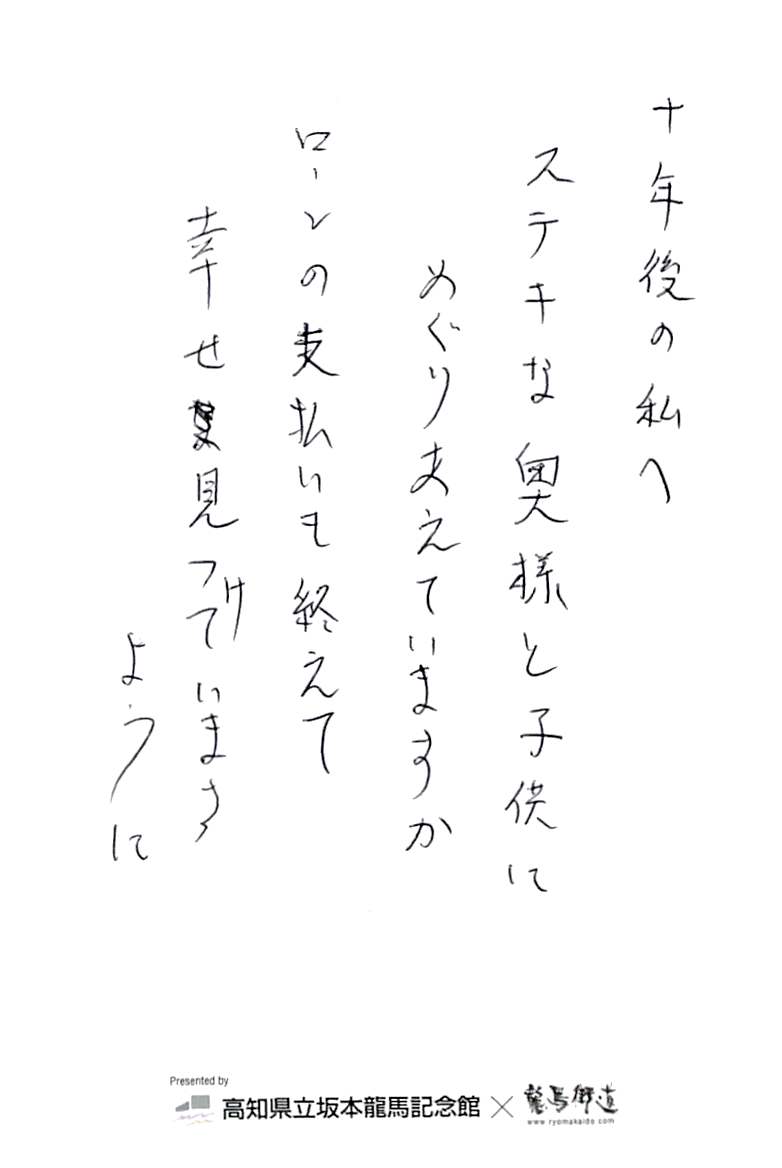 十年後の私へ
ステキな奥様と子供に
めぐりあえていますか
ローンの支払いも終えて
幸せ見つけています
ように
Presented by
高知県立坂本龍馬記念館×龍馬街道
www.ryomakaido.com